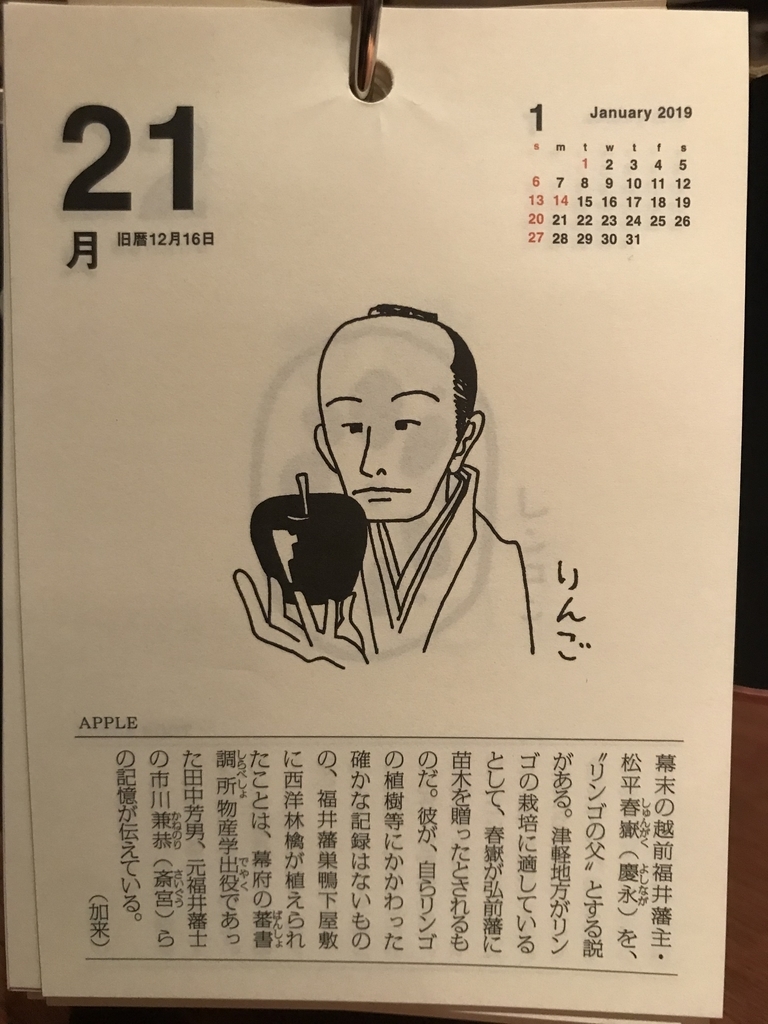 21
月
旧暦12月16日
1
January 2019
s m t w t f s
1 2 3 4 5
6 7 8 9 10 11 12
13 14 15 16 17 18 19
20 21 22 23 24 25 26
27 28 29 30 31
りんご
APPLE
幕末の越前福井藩主・
松平春嶽（慶永）を、
〝リンゴの父〟とする説
がある。津軽地方がリン
ゴの栽培に適している
として、春嶽が弘前藩に
苗木を贈ったとされるも
のだ。彼が、自らリンゴ
の植樹等にかかわった
確かな記録はないもの
の、福井藩巣鴨下屋敷
に西洋林檎が植えられ
たことは、幕府の蕃書
調所物産学出役であっ
た田中芳男、元福井藩士
の市川兼恭（斎宮）ら
の記憶が伝えている。
（加来）